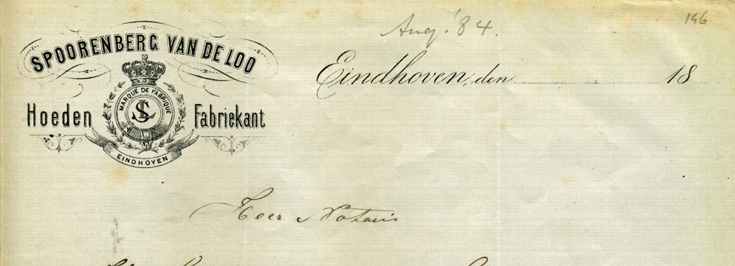 Aug. '84.
146
SPOORENBERG VAN DE LOO
Eindhoven, den 18
Hoeden Fabriekant
MARQUE DE FABRIQUE
EINDHOVEN
Heer Notaris